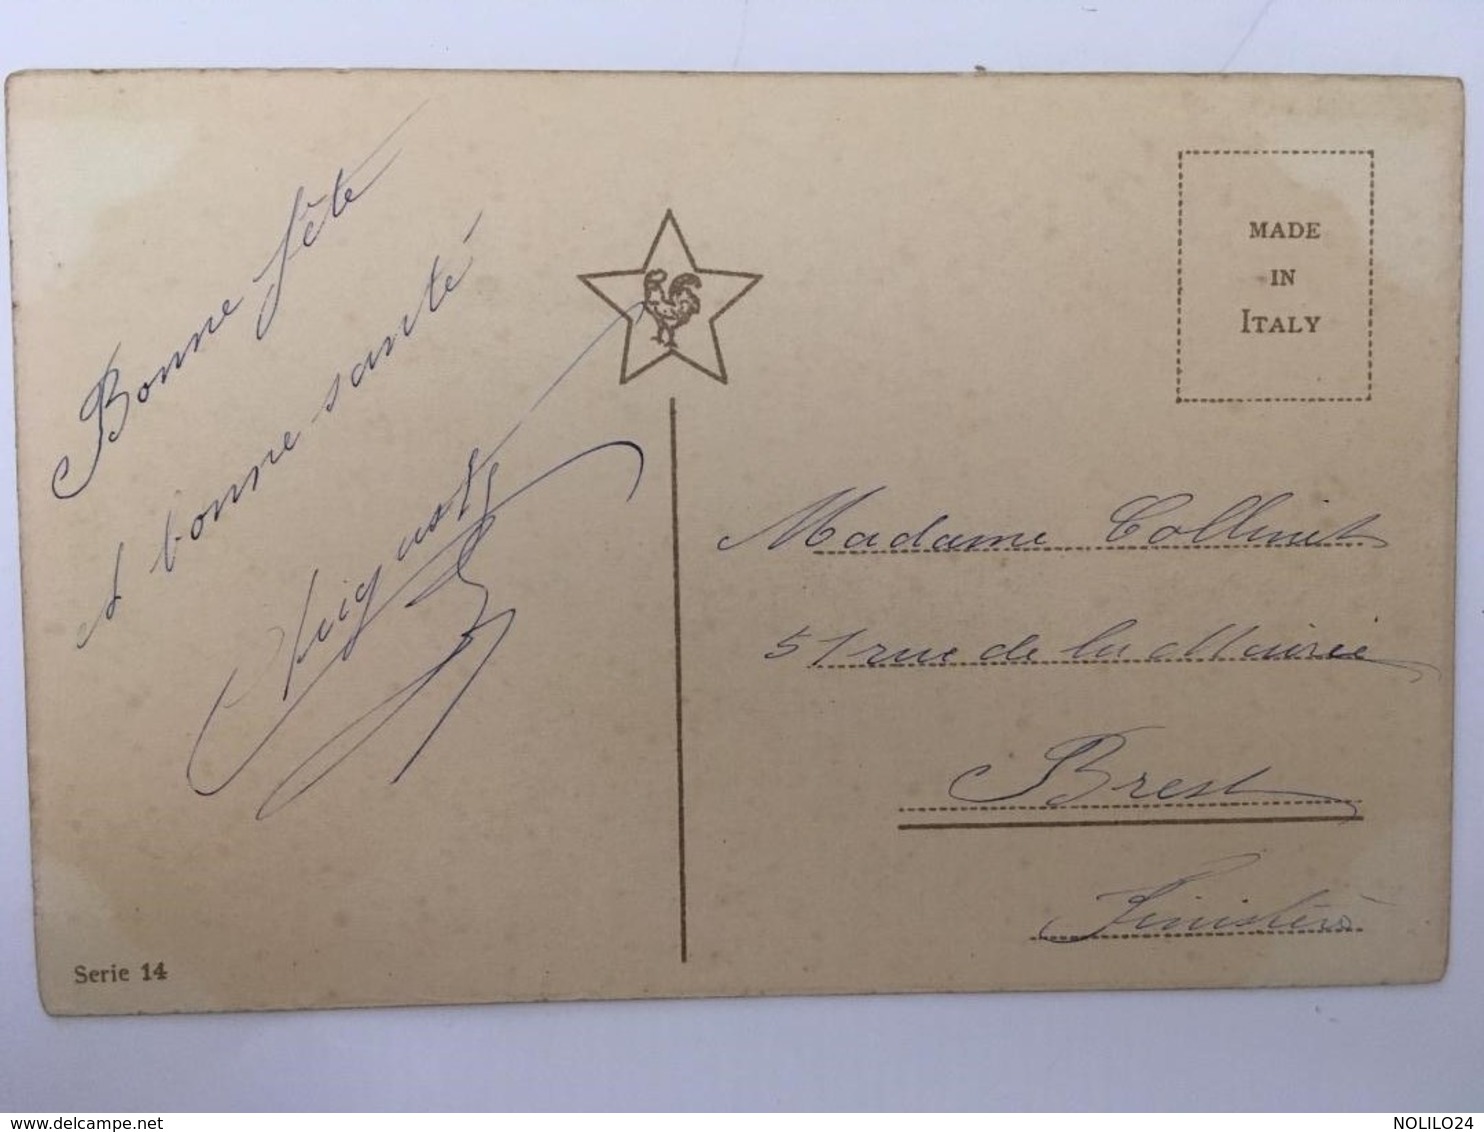 Bonne fête
et bonne santé
Auguste
MADE
IN
ITALY
Madame Collinet
51 rue de la Mairie
Brest
Finistère
Serie 14
delcampe.net
NOLILO24